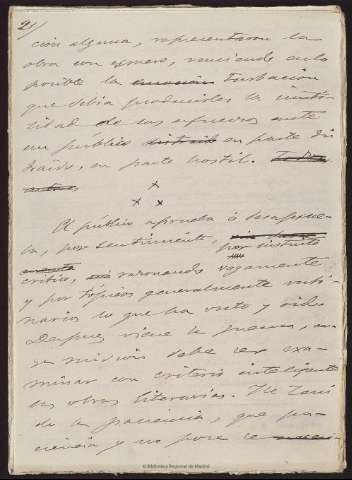 21
ción alguna, representaron la
obra con esmero, venciendo en lo
posible la emoción turbación
que debia producirles la inuti-
lidad de sus esfuerzos ante
un público en parte dis-
traido, en parte hostil.
x
x x
El público aprueba ó desaprue-
ba, por sentimiento, por instinto
critico, razonando vagamente
y por tópicos generalmente ruti-
narios lo que ha visto y oido.
Despues viene la prensa, que
su mision debe ser exa-
minar con criterio inteligente
las obras literarias.
de la paciencia, que pa-
ciencia y no poca se
©Biblioteca Regional de Madrid